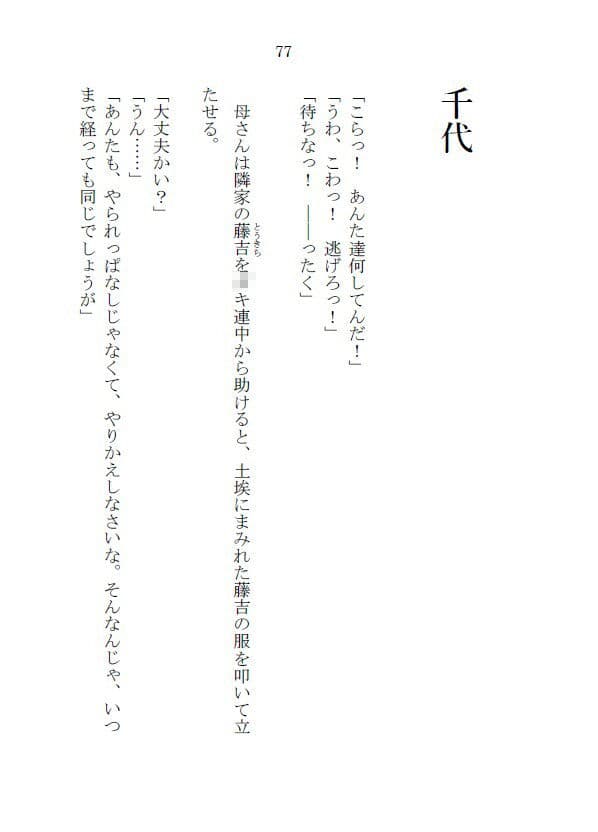 77
千代
「こらっ！　あんた達何してんだ！」
「うわ、こわっ！　逃げろっ！」
「待ちなっ！　――ったく」
母さんは隣家の藤吉をキ連中から助けると、土埃にまみれた藤吉の服を叩いて立
とうきち
たせる。
「大丈夫かい？」
「うん……」
「あんたも、やられっぱなしじゃなくて、やりかえしなさいな。そんなんじゃ、いつ
まで経っても同じでしょうが」